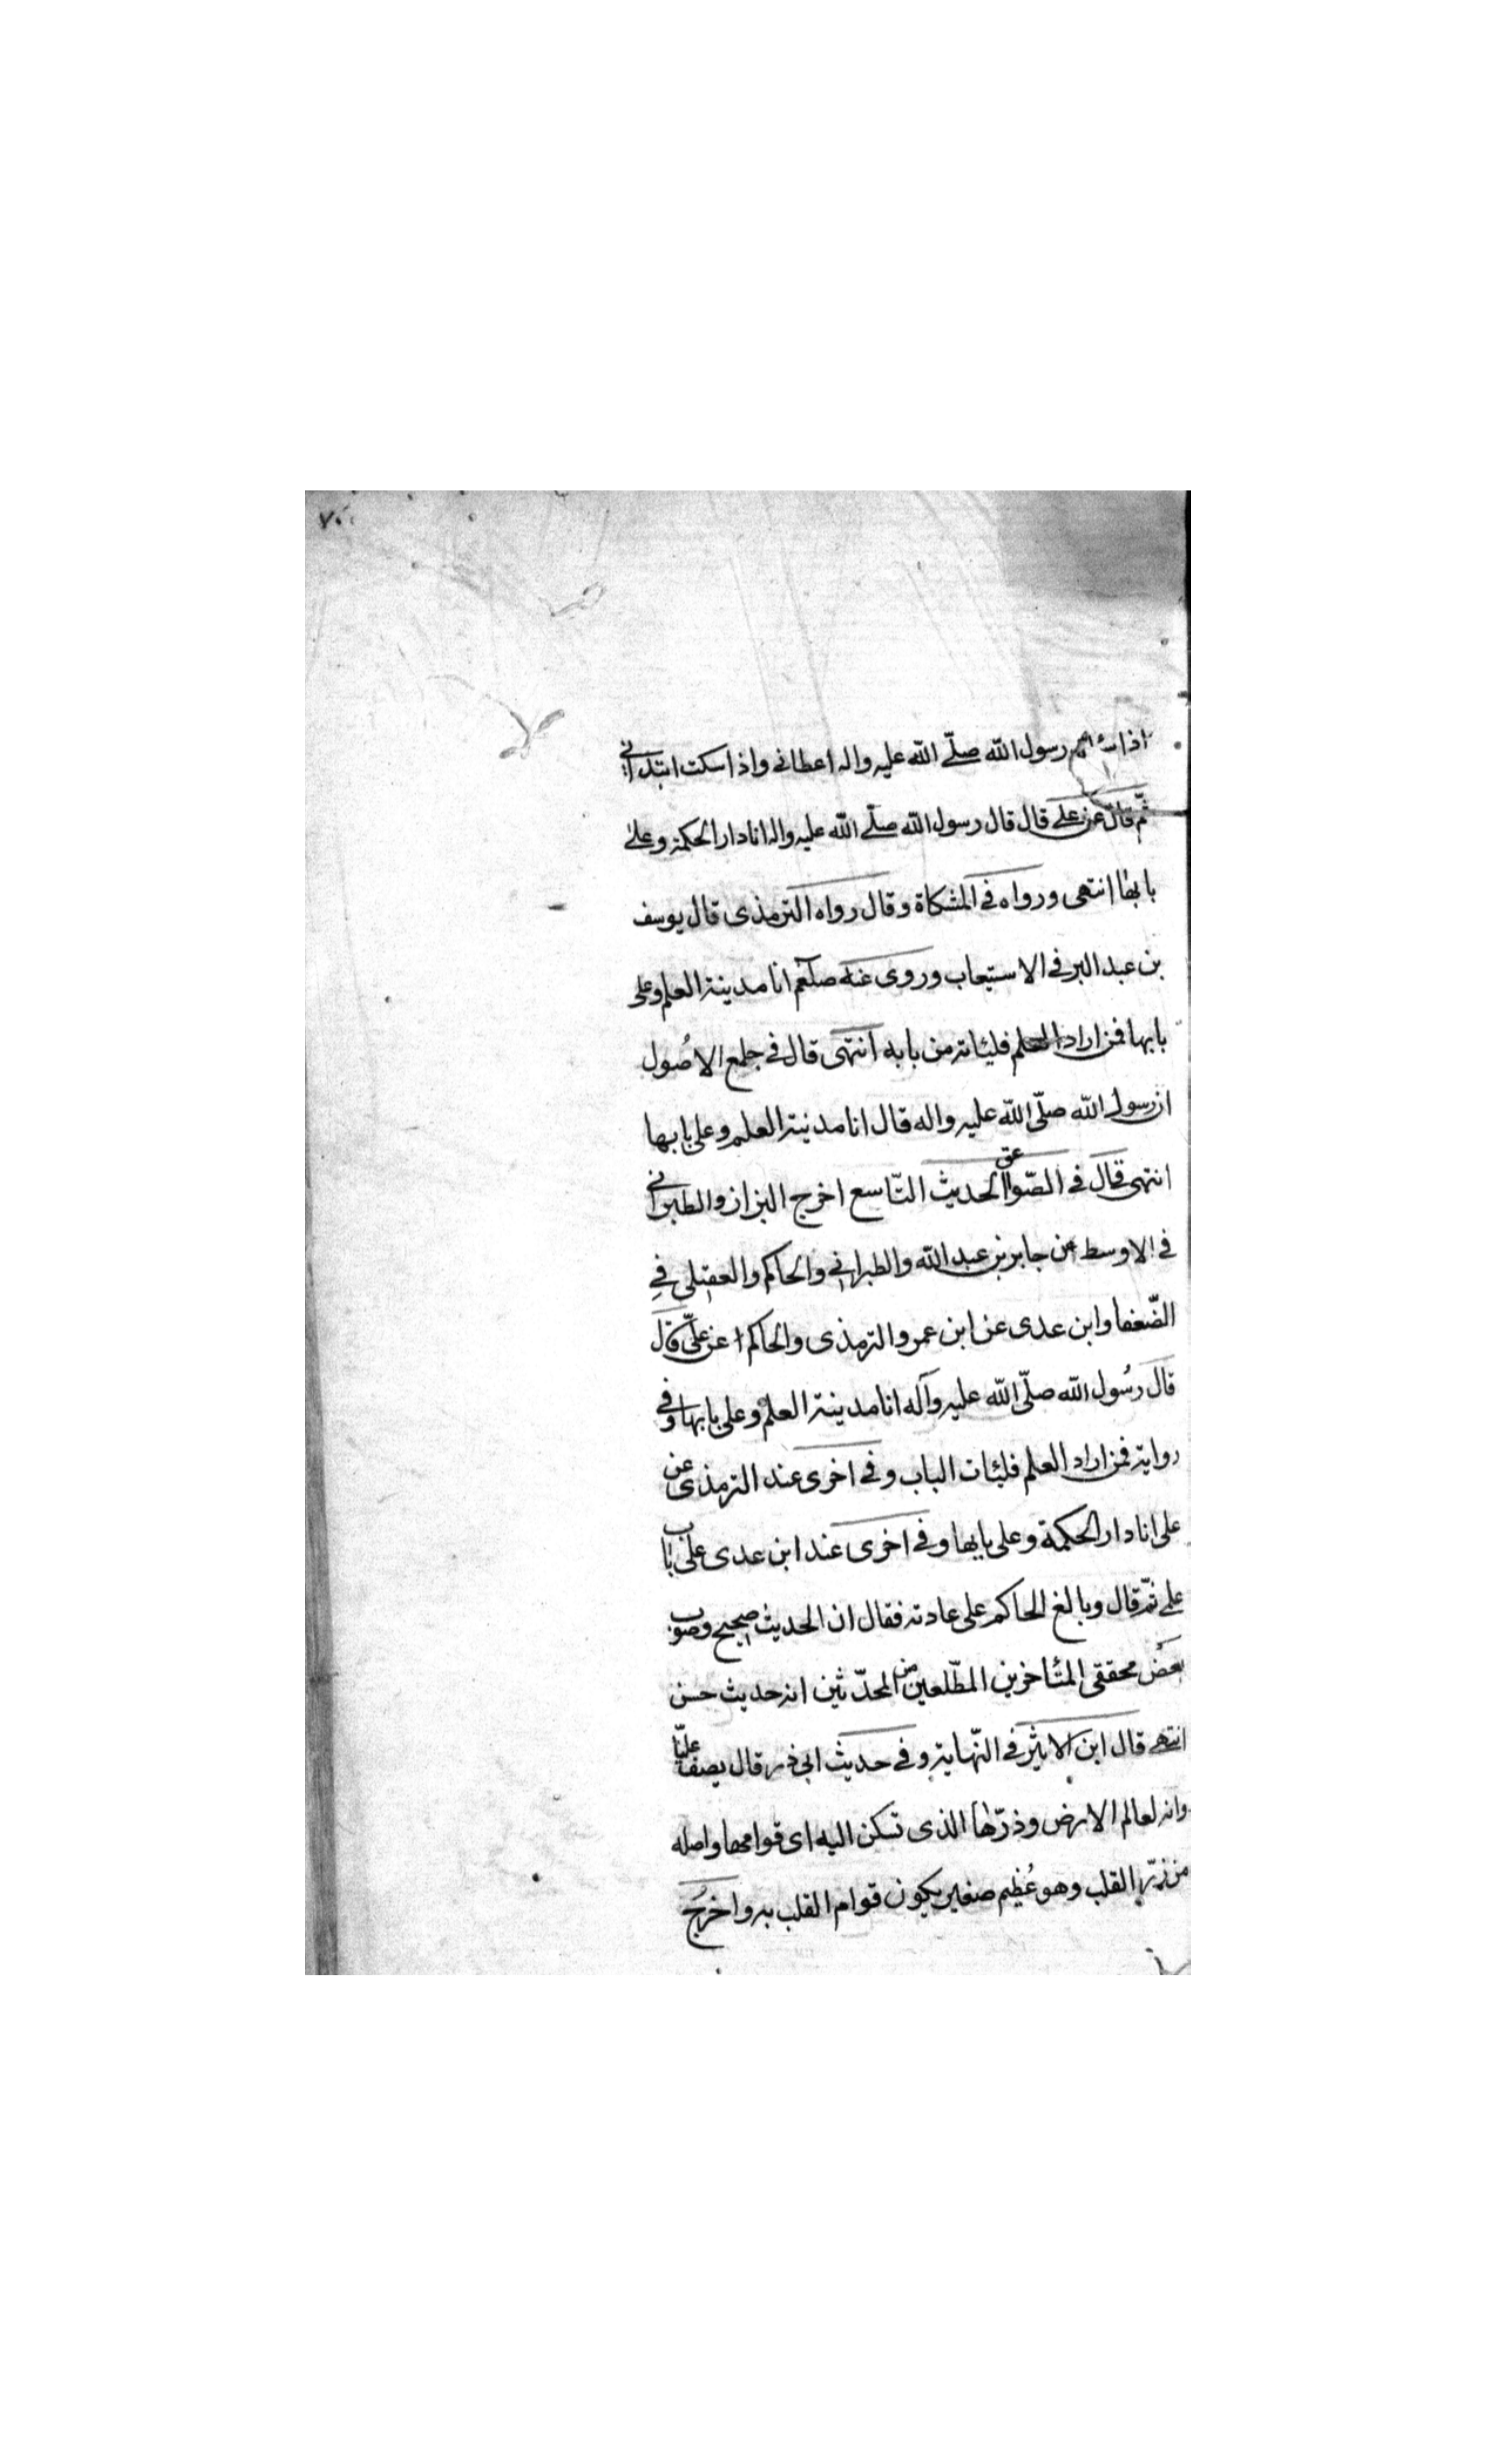 ٧٠
اذا سئلت رسول الله صلّى الله عليه واله اعطانى واذا سكت ابتدانى
ثمّ قال عن على قال قال رسول الله صلّى الله عليه واله انا دار الحكمة وعلى
بابها انتهى ورواه فى المشكاة وقال رواه الترمذى قال يوسف
بن عبد البر فى الاستيعاب وروى عنه صلعم انا مدينة العلم وعلى
بابها فمن اراد العلم فليئاته من بابه انتهى قال فى جامع الاصُول
ان رسول الله صلّى الله عليه واله قال انا مدينة العلم وعلى بابها
انتهى قال فى الصّواعق الحديث التّاسع اخرج البزاز والطبرانى
فى الاوسط عن جابر بن عبد الله والطبرانى والحاكم والعقيلى فى
الضّعفا وابن عدى عن ابن عمر والترمذى والحاكم عن علىّ قال
قال رسُول الله صلّى الله عليه وآله انا مدينة العلم وعلى بابها وفى
رواية فمن اراد العلم فليئات الباب وفى اخرى عند الترمذى عن
على انا دار الحكمة وعلى بابها وفى اخرى عند ابن عدى على باب
علمى ثمّ قال وبالغ الحاكم على عادته فقال ان الحديث صحيح وصوب
بعض محققى المتأخرين المطّلعين من المحدّثين انه حديث حسن
انتهى قال ابن الاثير فى النّهاية وفى حديث ابى ذر قال يصف عليّا
وانه لعالم الارض وذرّها الذى تسكن اليه اى قوامها واصله
من زرّ القلب وهو عُظيم صغير يكون قوام القلب به واخرج